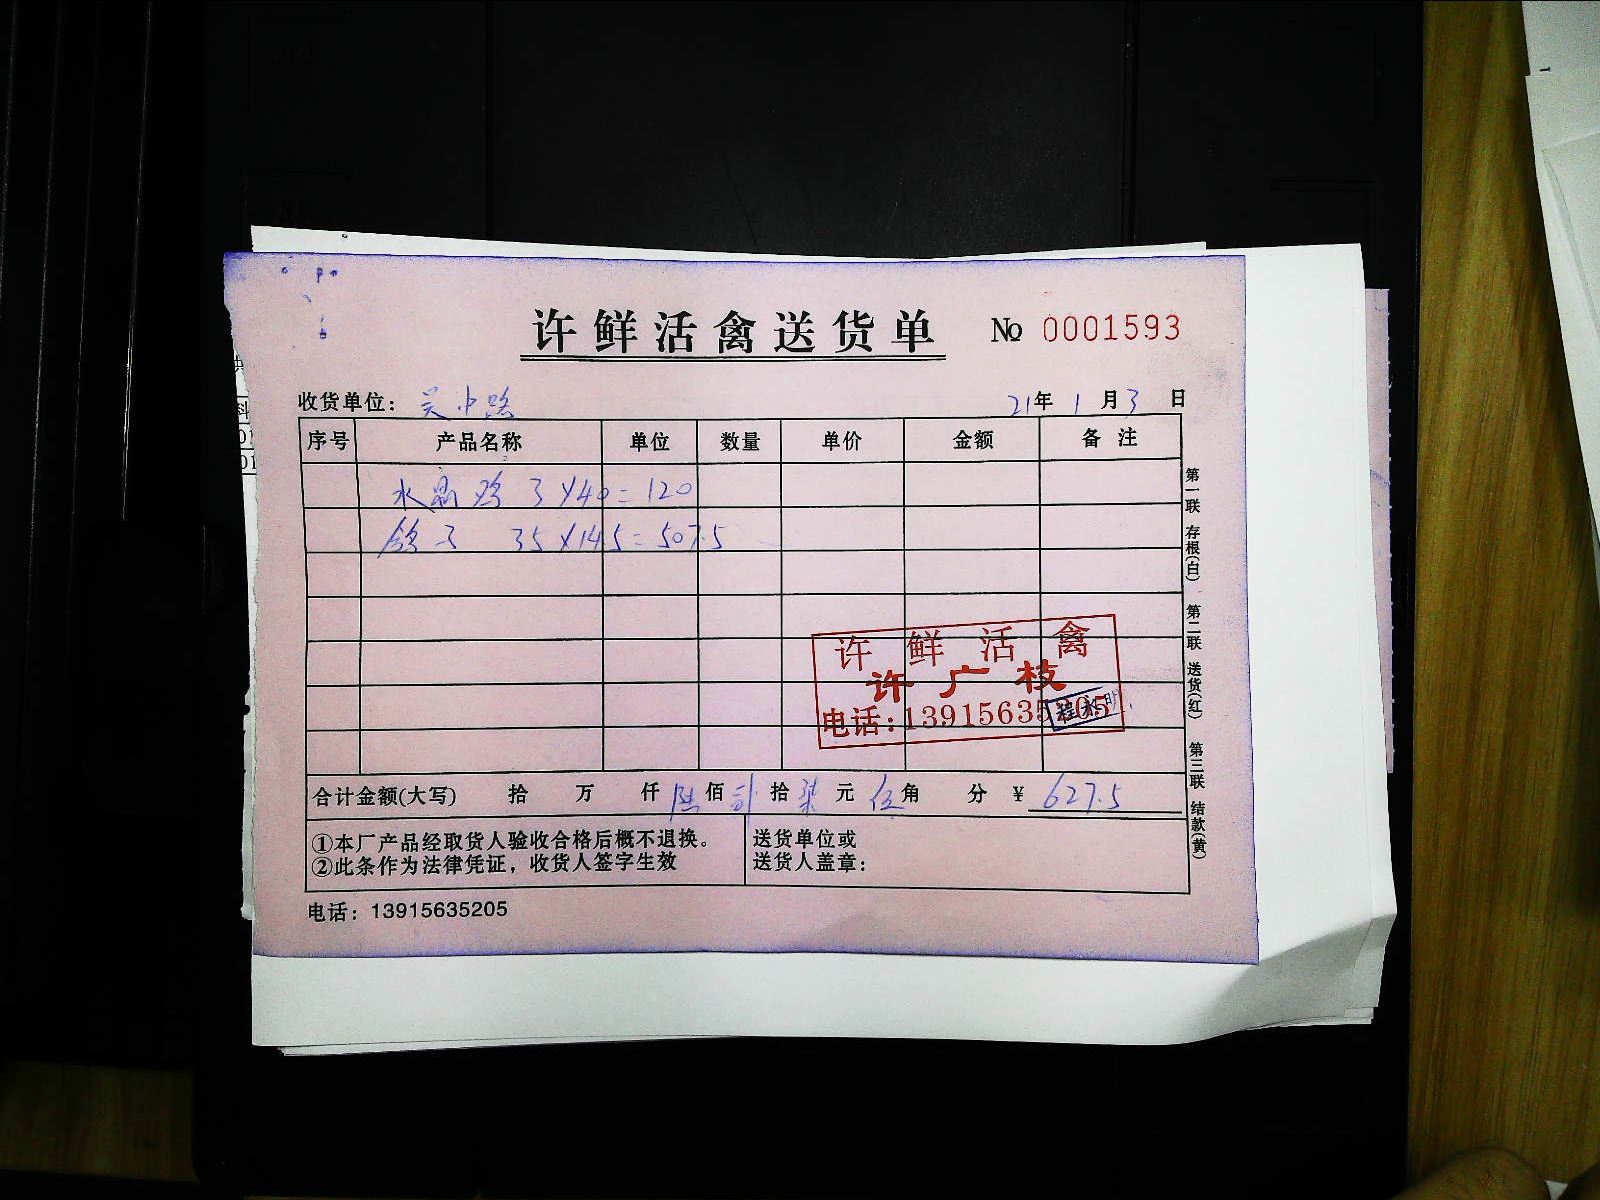 许鲜活禽送货单 № 0001593
收货单位：吴中路 21年1月3日
序号 产品名称 单位 数量 单价 金额 备注
水晶鸡 3×40=120
鸽子 35×14.5=507.5
许鲜活禽
许广枝
电话：13915635205
程永明
合计金额(大写) 拾 万 仟陆佰贰拾柒元伍角 分 ¥ 627.5
①本厂产品经取货人验收合格后概不退换。
②此条作为法律凭证，收货人签字生效
送货单位或
送货人盖章：
电话：13915635205
第一联 存根(白) 第二联 送货(红) 第三联 结款(黄)